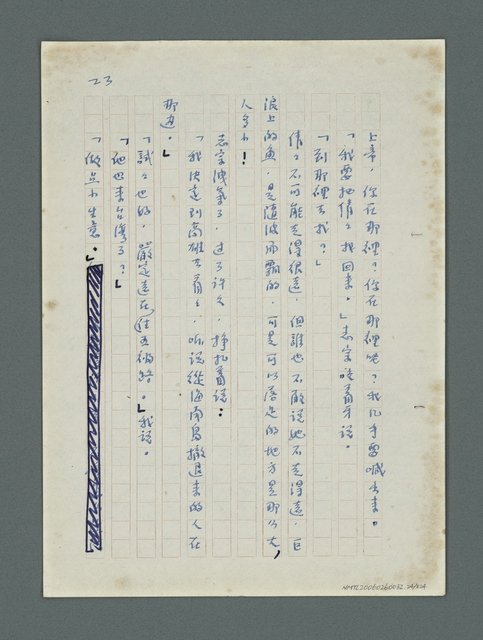 23
上帝，你在那裡？你在那裡呢？我几乎要喊出來。
「我要把倩倩找回來。」志宗咬着牙說。
「到那裡去找？」
倩倩不可能走得很遠，但誰也不敢說她不走得遠，巨
浪上的魚，是隨波而飄的，可是可以落足的地方是那么大，
人多小！
志宗洩氣了，过了許久，掙扎着說：
「我決定到高雄去看看，听說從海南島撤退來的人在
那边。」
「試試也好，嚴定遠在住五福路。」我說。
「他也來台灣了？」
「做点小生意。」
NMTL20060260032.24/224